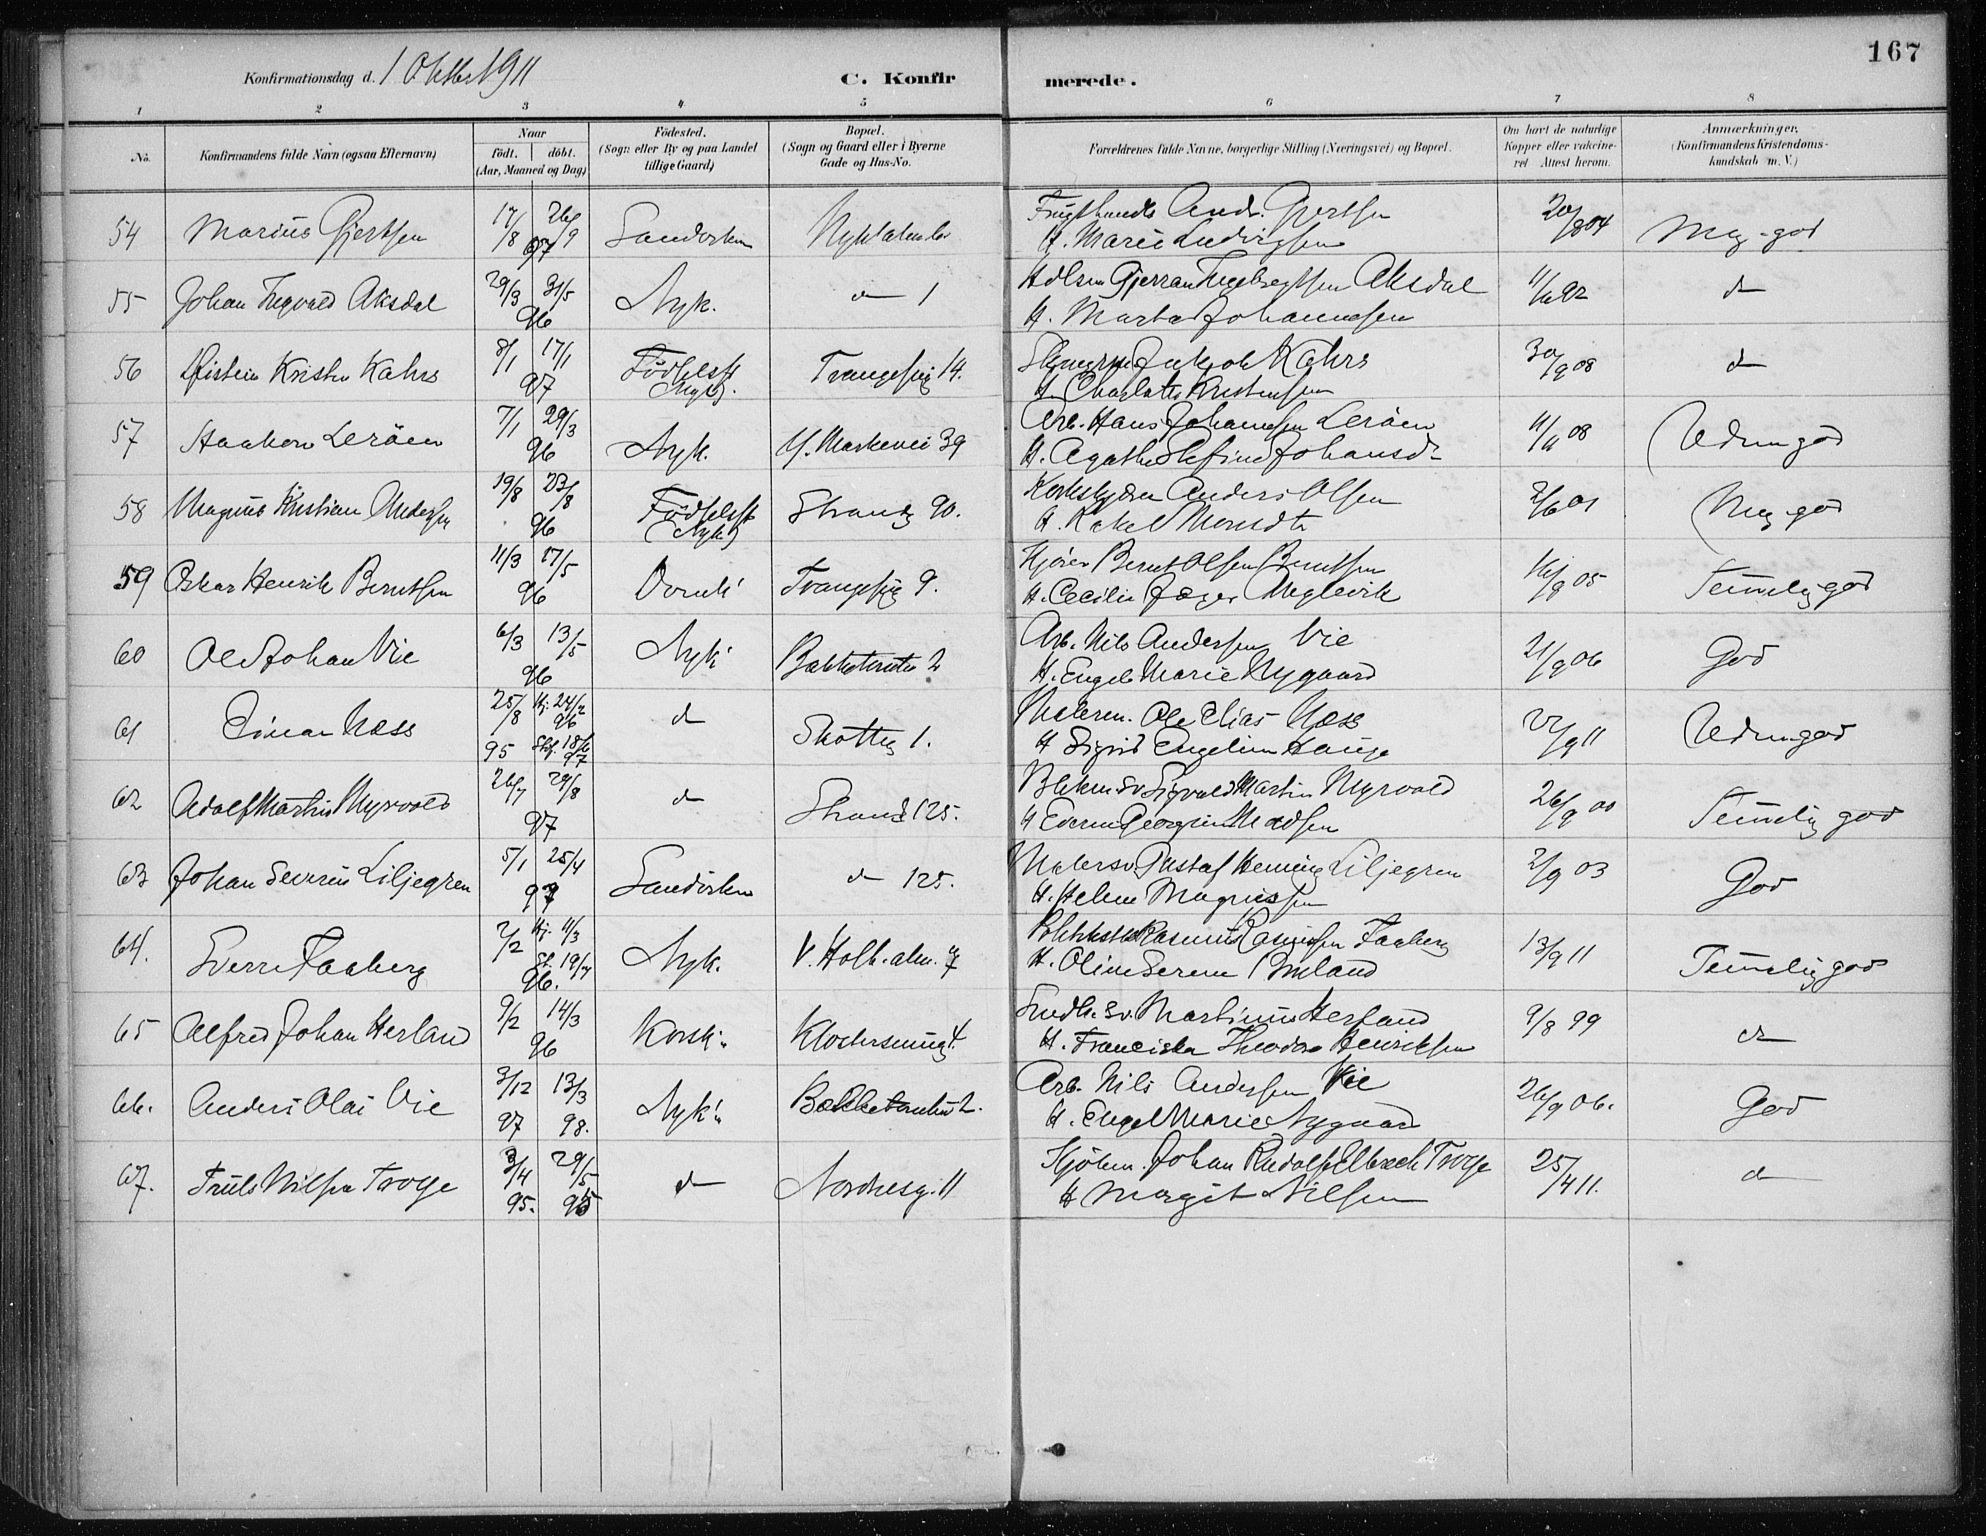 167
Konfirmationsdag d. 1 Oktbr 1911
C. Konfirmerede.
1 2 3 4 5 6 7 8
No.
Konfirmandens fulde Navn (ogsaa Efternavn)
Naar
födt. döbt.
(Aar, Maaned og Dag)
Födested.
(Sogn eller By og paa Landet
tillige Gaard)
Bopæl.
(Sogn og Gaard eller i Byerne
Gade og Hus-No.
Forældrenes fulde Navne, borgerlige Stilling (Næringsvei) og Bopæl.
Om havt de naturlige
Kopper eller vakcine-
ret Attest herom.
Anmærkninger.
(Konfirmandens Kristendoms-
kundskab m. V.)
54 Marius Gjertsen 17/8 26/9 97 Sandviken
Andr. Gjertsen
H. Marie Ludvigsen
20/8 04 Meg. god
55 Johan Ingvald Aksdal 29/3 31/5 96 Nyk. d 1
Aksdal
H. Marta Johannesen
11/6 92 d
56 Øistein Kristen Kahrs 8/1 17/1 97 Födselsst (Nyk). Trangesmg 14.
Jakob Kahrs
H. Charlotte Kristensen
30/9 08 d
57 Haakon Leröen 7/1 29/3 96 Nyk. Y. Markevei 39
Arb. Hans Johannesen Leröen
H. Agathe Johansd.
11/11 08 Udm. god
58 Magnus Kristian Andersen 19/8 23/8 96 Födselsst (Nyk) Strandg 90.
Anders Olsen
H. Rakel Monsdtr
2/6 01 Meg god
59 Oskar Henrik Berntsen 11/3 17/5 96 Domk. Trangesmg 9.
Kjörer Bernt Olsen Berntsen
H. Cecilie
16/9 05 Temmelig god
60 Ole Johan Vie 6/3 13/5 96 Nyk. 2
Arb. Nils Andersen Vie
H. Engel Marie Nygaard
21/9 06 God
61 Einar Næss 25/8 95 Hj. 24/2 96 Stf. 18/6 97 d Skotteg 1.
Ole Elias Næss
H Sigrid Engeline Hauge
22/9 11 Udm. god
62 Adolf Martin Myrvold 26/7 29/8 97 d Strandg 125.
Sigvald Martin Myrvold
H Madsen
26/9 00 Temmelig god
63 Johan Severin Liljegren 5/1 25/4 97 Sandviken d 125.
Malersv. Gustaf Henning Liljegren
H. Helene Magnussen
2/9 03 God
64. Sverre Faaberg 2/2 Hj. 11/3 St. 19/7 96. Nyk. V. Holb. alm. 7
Rasmus Rasmussen Faaberg
H. Oline Serene
13/9 11 Temmelig god
65 Alfred Johan Herland 9/2 14/3 96 Korsk. Klostersmug 4.
Sv. Martinus Herland
H. Franciska Theodora Henriksen
9/8 99 d
66. Anders Olai Vie 3/12 97 13/3 98. Nyk. 2.
Arb. Nils Andersen Vie
H. Engel Marie Nygaard
26/9 06. God
67. Truls Nilsen Troye 3/4 95. 29/5 95 d Nordnesg. 11
Kjöbm. Johan Rudolf Elbrecht Troye
H Margit Nilsen
25/4 11. d